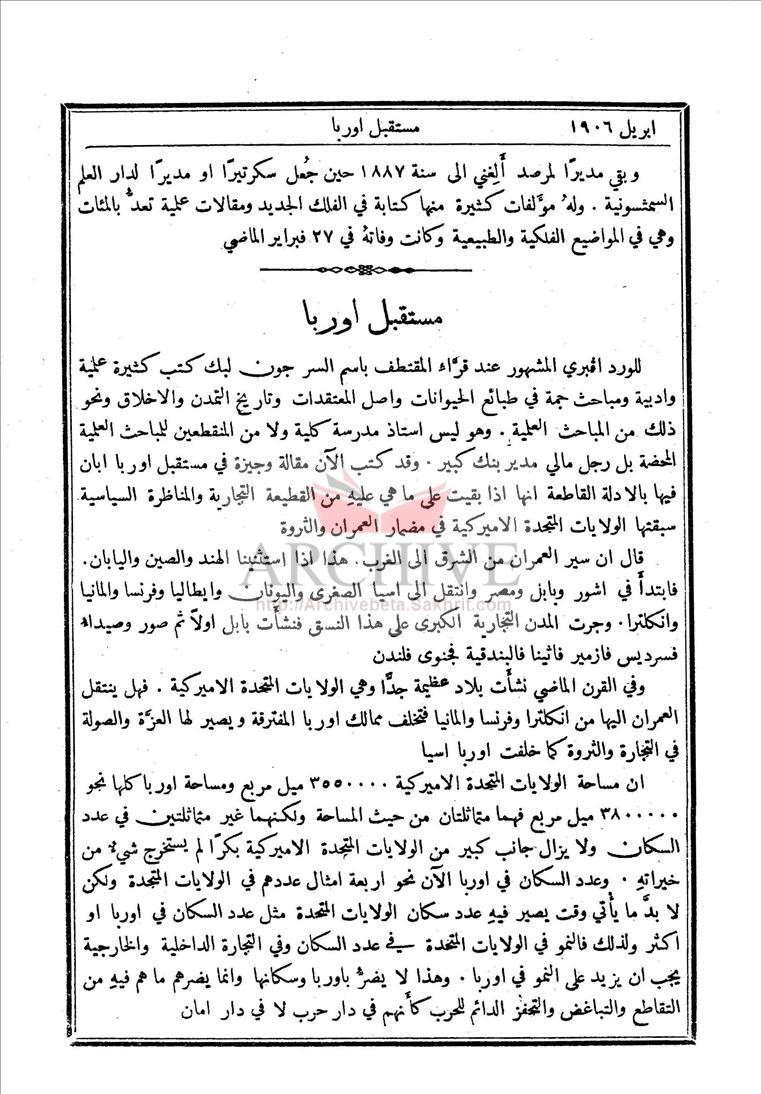 ابريل ١٩٠٦ مستقبل اوربا
وبقي مديرًا لمرصد ألغني الى سنة ١٨٨٧ حين جُعل سكرتيرًا او مديرًا لدار العلم
السمثسونية . ولهُ مؤلفات كثيرة منها كتابة في الفلك الجديد ومقالات علمية تعدُّ بالمئات
وهي في المواضيع الفلكية والطبيعية وكانت وفاتهُ في ٢٧ فبراير الماضي
مستقبل اوربا
للورد افبري المشهور عند قرَّاء المقتطف باسم السر جون لبك كتب كثيرة علمية
وادبية ومباحث جمة في طبائع الحيوانات واصل المعتقدات وتاريخ التمدن والاخلاق ونحو
ذلك من المباحث العلمية . وهو ليس استاذ مدرسة كلية ولا من المنقطعين للمباحث العلمية
المحضة بل رجل مالي مدير بنك كبير . وقد كتب الآن مقالة وجيزة في مستقبل اوربا ابان
فيها بالادلة القاطعة انها اذا بقيت على ما هي عليهِ من القطيعة التجارية والمناظرة السياسية
سبقتها الولايات المتحدة الاميركية في مضمار العمران والثروة
قال ان سير العمران من الشرق الى الغرب . هذا اذا استثنينا الهند والصين واليابان .
فابتدأ في اشور وبابل ومصر وانتقل الى اسيا الصغرى واليونان وايطاليا وفرنسا والمانيا
وانكلترا . وجرت المدن التجارية الكبرى على هذا النسق فنشأت بابل اولاً ثم صور وصيداء
فسرديس فازمير فاثينا فالبندقية فجنوى فلندن
وفي القرن الماضي نشأت بلاد عظيمة جدًّا وهي الولايات المتحدة الاميركية . فهل ينتقل
العمران اليها من انكلترا وفرنسا والمانيا فتخلف ممالك اوربا المفترقة ويصير لها العزَّة والصولة
في التجارة والثروة كما خلفت اوربا اسيا
ان مساحة الولايات المتحدة الاميركية ٣٥٥٠٠٠٠ ميل مربع ومساحة اوربا كلها نحو
٣٨٠٠٠٠٠ ميل مربع فهما متماثلتان من حيث المساحة ولكنهما غير متماثلتين في عدد
السكان ولا يزال جانب كبير من الولايات المتحدة الاميركية بكرًا لم يستخرج شيءٌ من
خيراتهِ . وعدد السكان في اوربا الآن نحو اربعة امثال عددهم في الولايات المتحدة ولكن
لا بدَّ ما يأتي وقت يصير فيهِ عدد سكان الولايات المتحدة مثل عدد السكان في اوربا او
اكثر ولذلك فالنمو في الولايات المتحدة في عدد السكان وفي التجارة الداخلية والخارجية
يجب ان يزيد على النمو في اوربا . وهذا لا يضرُّ باوربا وسكانها وانما يضرهم ما هم فيهِ من
التقاطع والتباغض والتحفز الدائم للحرب كأنهم في دار حرب لا في دار امان
ARCHIVE
http://Archivebeta.Sakhrit.com